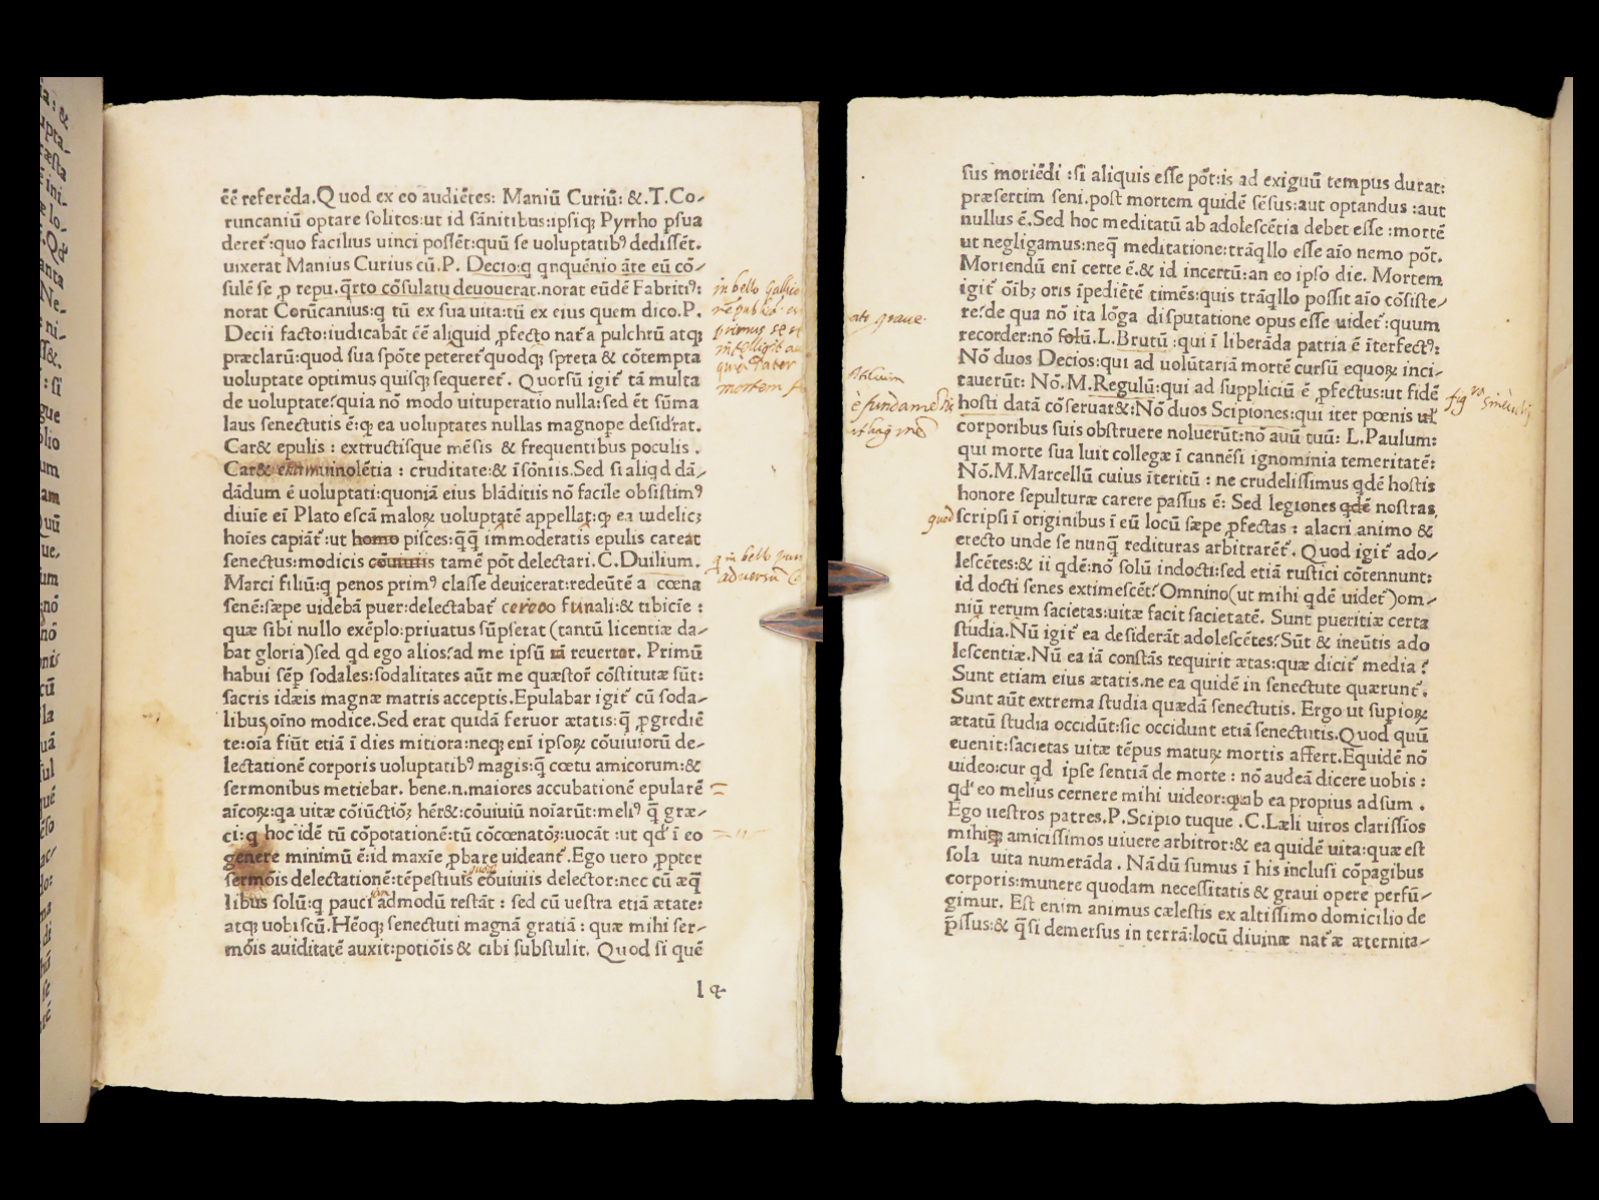 ēē referēda.Quod ex eo audiētes: Maniū Curiū: &.T.Co-
runcaniū optare solitos:ut id sānitibus:ipsiqꝫ Pyrrho ꝑsua
deret᷑:quo facilius uinci possēt:quū se uoluptatibꝰ dedissēt.
uixerat Manius Curius cū.P. Decio:q qnquēnio āte eū cō-
sulē se ꝓ repu.q̄rto cōsulatu deuouerat.norat eūdē Fabritiꝰ:
norat Corūcanius:q tū ex sua uita:tū ex eius quem dico.P.
Decii facto:iudicabāt ēē aliquid ꝓfecto nat᷑a pulchrū atqꝫ
præclarū:quod sua spōte peteret᷑ quodqꝫ spreta & cōtempta
uoluptate optimus quisqꝫ sequeret᷑. Quorsū igit᷑ tā multa
de uoluptate?quia nō modo uituperatio nulla:sed ēt sūma
laus senectutis ē:qꝫ ea uoluptates nullas magnope desid᷑rat.
Car& epulis : extructisque mēsis & frequentibus poculis .
Car& uinolētia : cruditate:& īsōniis.Sed si aliqd dā-
dādum ē uoluptati:quoniā eius blāditiis nō facile obsistimꝰ
diuie ei Plato escā maloꝝ uoluptatē appellat:qꝫ ea uidelicꝫ
hoies capiāt᷑:ut homo pisces:q̄q̄ immoderatis epulis careat
senectus:modicis cōuiuiis tamē pōt delectari.C.Duilium.
Marci filiū:q penos primꝰ classe deuicerat:redeūtē a cœna
senē:sæpe uidebā puer:delectabat᷑ cereoo funali:& tibicīe :
quæ sibi nullo exēplo:priuatus sūpserat (tantū licentiæ da-
bat gloria)sed qd ego alios?ad me ipsū iā reuertor. Primū
habui sēp sodales:sodalitates aūt me quæstor̄ cōstitutæ sūt:
sacris idæis magnæ matris acceptis.Epulabar igit᷑ cū soda-
libus oīno modice.Sed erat quidā feruor ætatis:q̄ ꝓgrediē
te:oīa fiūt etiā ī dies mitiora:neqꝫ enī ipsoꝝ cōuiuiorū de-
lectationē corporis uoluptatibꝰ magis:q̄ cœtu amicorum:&
sermonibus metiebar. bene.n.maiores accubationē epularē
aīcoꝝ:qa uitæ cōiūctiōꝫ hēr&:cōuiuiū noīarūt:meliꝰ q̄ græ-
ci:q hoc idē tū cōpotationē:tū cōcœnatōꝫ:uocāt :ut qd᷑ ī eo
genere minimū ē:id maxīe ꝓbare uideant᷑.Ego uero ꝓpter
sermōis delectationē:tēpestiuis cōuiuiis delector:nec cū æq̄
libus solū:q pauci admodū restāt : sed cū uestra etiā ætate:
atqꝫ uobiscū.Hēoqꝫ senectuti magnā gratiā : quæ mihi ser-
mōis auiditatē auxit:potiōis & cibi substulit. Quod si quē
in bello Gallico
primus se
mortem
in bello
aduersū
sus moriēdi :si aliquis esse pōt:is ad exiguū tempus durat:
præsertim seni.post mortem quidē sēsus:aut optandus :aut
nullus ē.Sed hoc meditatū ab adolescētia debet esse :mortē
ut negligamus:neq̄ meditatione:trāqllo esse aīo nemo pōt.
Moriendū enī certe ē.& id incertū:an eo ipso die. Mortem
igit᷑ oībꝫ oris īpediētē timēs:quis trāqllo possit aīo cōsiste-
re?de qua nō ita lōga disputatione opus esse uidet᷑:quum
recorder:nō solū.L.Brutū :qui ī liberāda patria ē īterfectꝰ:
Nō duos Decios:qui ad uolūtariā mortē cursū equoꝝ inci-
tauerūt: Nō.M.Regulū:qui ad suppliciū ē ꝓfectus:ut fidē
hosti datā cōseruat&:Nō duos Scipiones:qui iter pœnis ul᷑
corporibus suis obstruere noluerūt:nō auū tuū: L.Paulum:
qui morte sua luit collegæ ī cannēsi ignominia temeritatē:
Nō.M.Marcellū cuius īteritū : ne crudelissimus qdē hostis
honore sepulturæ carere passus ē: Sed legiones qdē nostras
scripsi ī originibus ī eū locū sæpe ꝓfectas : alacri animo &
erecto unde se nunq̄ redituras arbitrarēt᷑. Quod igit᷑ ado-
lescētes:& ii qdē:nō solū indocti:sed etiā rustici cōtennunt:
id docti senes extimescēt?Omnino(ut mihi qdē uidet᷑)om-
niū rerum sacietas:uitæ facit sacietatē. Sunt pueritiæ certa
studia.Nū igit᷑ ea desiderāt adolescētes?Sūt & ineūtis ado
lescentiæ.Nū ea iā constās requirit ætas:quæ dicit᷑ media ?
Sunt etiam eius ætatis.ne ea quidē in senectute quærunt᷑.
Sunt aūt extrema studia quædā senectutis. Ergo ut supioꝝ
ætatū studia occidūt:sic occidunt etiā senectutis.Quod quū
euenit:sacietas uitæ tēpus matuꝝ mortis affert.Equidē nō
uideo:cur qd ipse sentiā de morte : nō audeā dicere uobis :
qd᷑ eo melius cernere mihi uideor:q ab ea propius adsum .
Ego uestros patres.P.Scipio tuque .C.Læli uiros clarissios
mihiqꝫ amicissimos uiuere arbitror:& ea quidē uita:quæ est
sola uita numerāda . Nā dū sumus ī his inclusi cōpagibus
corporis:munere quodam necessitatis & graui opere perfū-
gimur. Est enim animus cælestis ex altissimo domicilio de
p̄ssus:& q̄si demersus in terrā:locū diuinæ nat᷑æ æternita-
graue
è fundame
quod